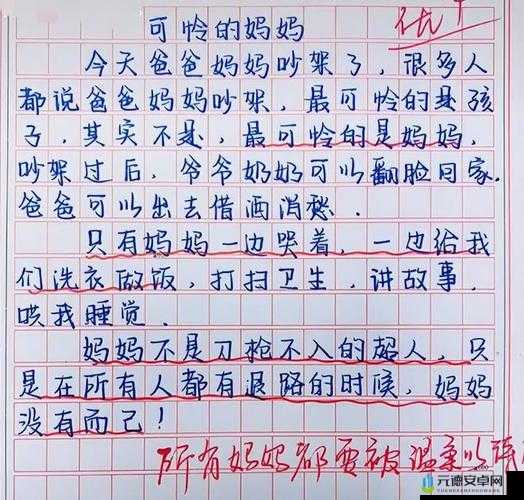 可怜的妈妈
优+
今天爸爸妈妈吵架了，很多人
都说爸爸妈妈吵架，最可怜的是孩
子，其实不是，最可怜的是妈妈，
吵架过后，爷爷奶奶可以翻脸回家.
爸爸可以出去借酒消愁.
只有妈妈一边哭着，一边给我
们洗衣做饭，打扫卫生，讲故事.
哄我睡觉.
妈妈不是刀枪不入的超人，只
是在所有人都有退路的时候，妈妈
没有而已！
所有妈妈都要被温柔以待
元德安卓网